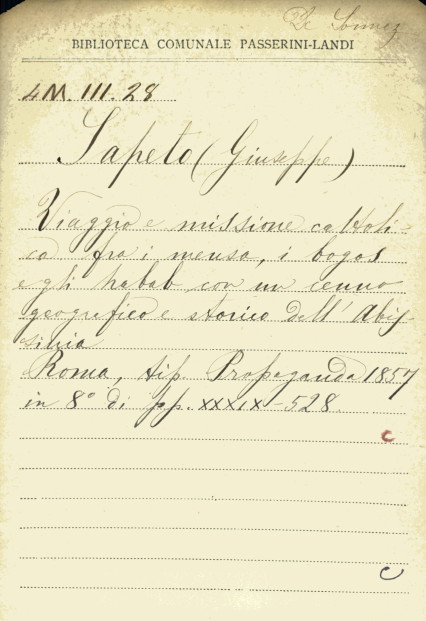 BIBLIOTECA COMUNALE PASSERINI-LANDI
4M.III.28
Sapeto (Giuseppe)
Viaggio e missione cattoli-
ca fra i mensa, i bogos
e gli habab con un cenno
geografico e storico dell' Abis
sinia
Roma, tip. Propaganda 1857
in 8° di pp. XXXIX-528.
C
C